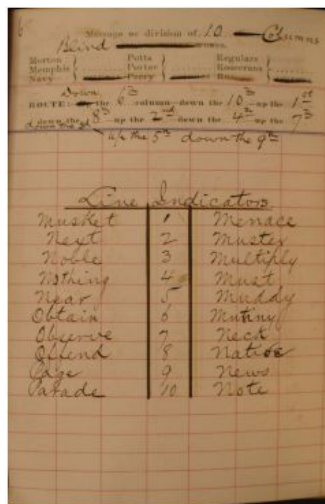 6
Message or division of 10 Columns
Blind
Morton Potts Regulars
Memphis Porter Rosecrans
Navy Perry
Down
ROUTE: the 6th column—down the 10th—up the 1st
down the 8th—up the 2nd—down the 4th—up the 7th
down the 3d up the 5th down the 9th
Line Indicators
Musket 1 Menace
Next 2 Muster
Noble 3 Multiply
Nothing 4 Must
Near 5 Muddy
Obtain 6 Mutiny
Observe 7 Neck
Offend 8 Native
Page 9 News
Parade 10 Note